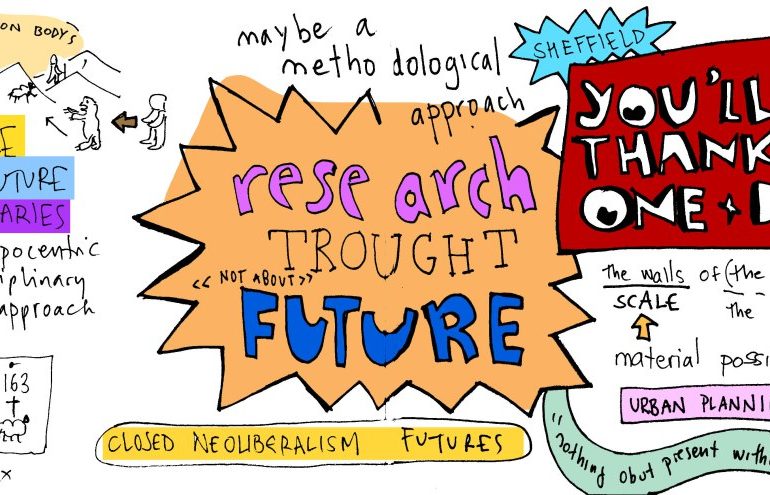 ON BODYS
UTURE
ARIES
pocentric
iplinary
approach
163
x
maybe a
methodological
approach
research
TROUGHT
<< NOT ABOUT >>
FUTURE
CLOSED NEOLIBERALISM FUTURES
SHEFFIELD
YOU'LL
THANK
ONE + D
the walls of (the
SCALE
The
material possi
URBAN PLANNI
"nothing obut present withi